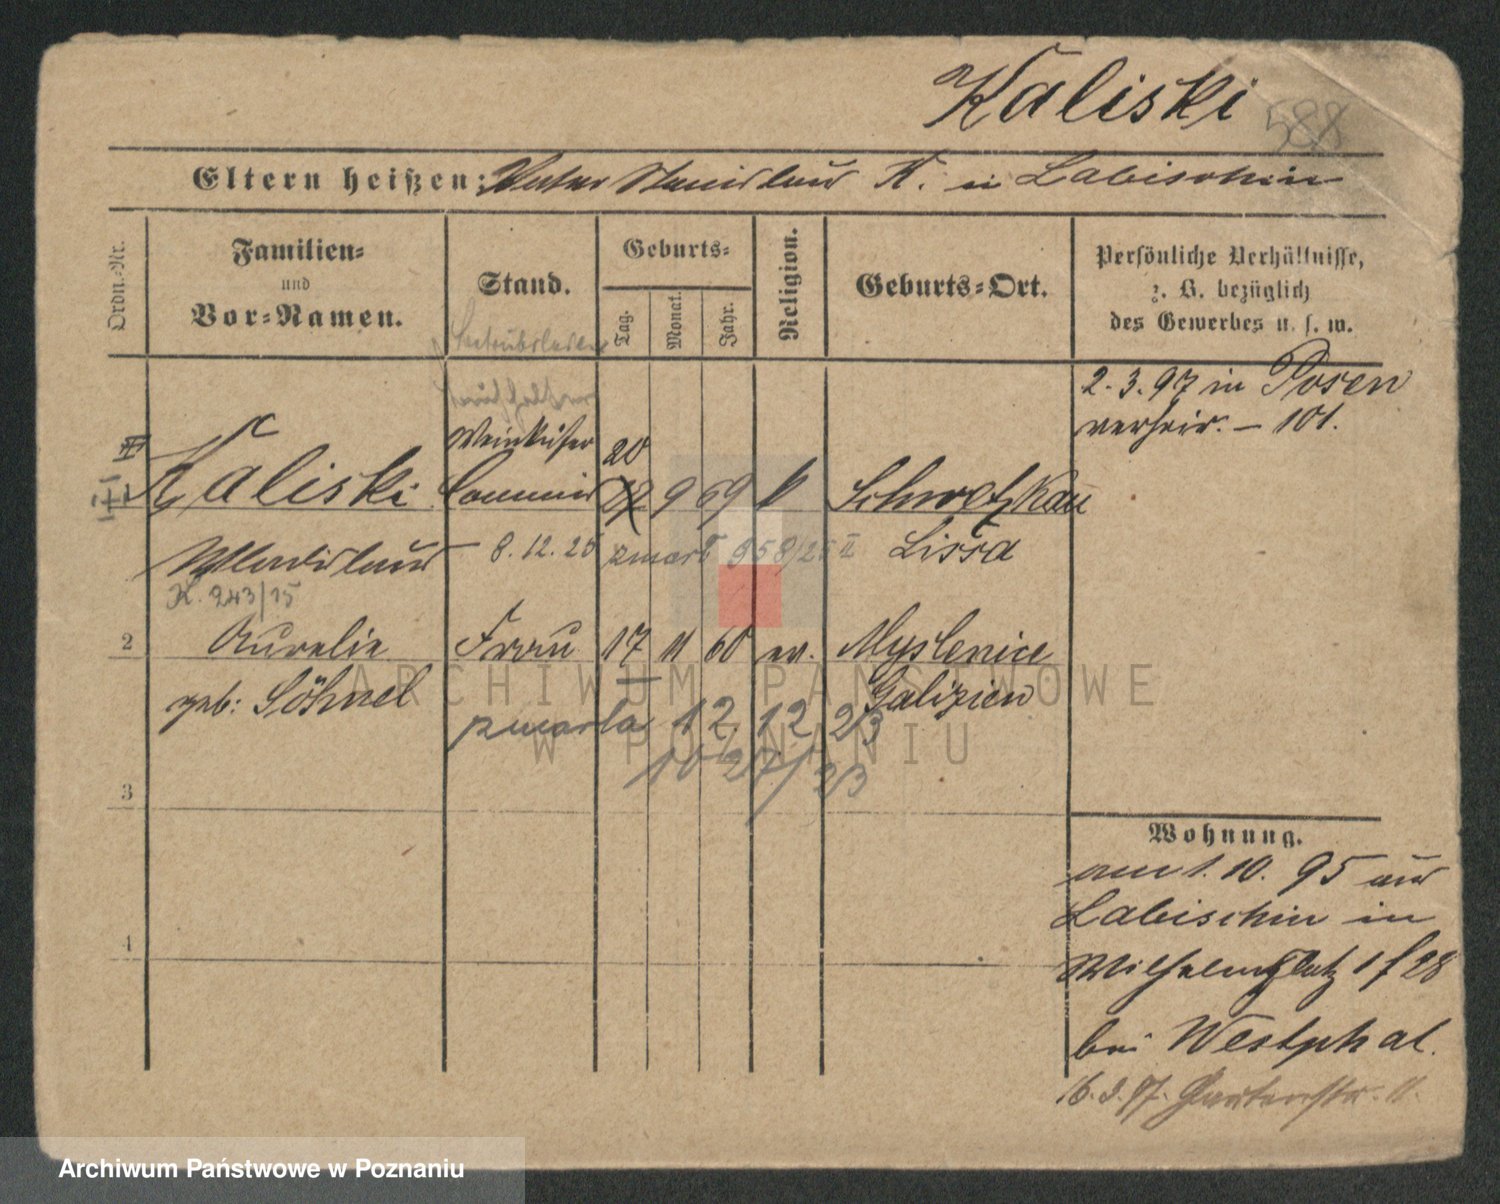 Kaliski
588
Eltern heißen: Vater Stanislaus K. in Labischin
Ordn.-Nr.
Familien-
und
Vor-Namen.
Stand.
Geburts-
Tag.
Monat.
Jahr.
Religion.
Geburts-Ort.
Persönliche Verhältnisse,
z. B. bezüglich
des Gewerbes u. s. w.
2.3.97 in Posen
verheir. – 101.
Weinküfer
20
Kaliski Commis 12 9 69 k Schwetzkau
Wladislaus – 8.12.25 zmarł 958/25 II Lissa
K. 243/15
2 Aurelie Frau 17 11 60 ev. Myslenice
geb: Söhnel Galizien
zmarła 12 12 23
1027/23
3
4
Wohnung.
am 1.10.95 aus
Labischin in
Wilhelmsplatz 1 f 28
bei Westphal.
16.3.97. Gartenstr. 11.
ARCHIWUM PAŃSTWOWE
W POZNANIU
Archiwum Państwowe w Poznaniu